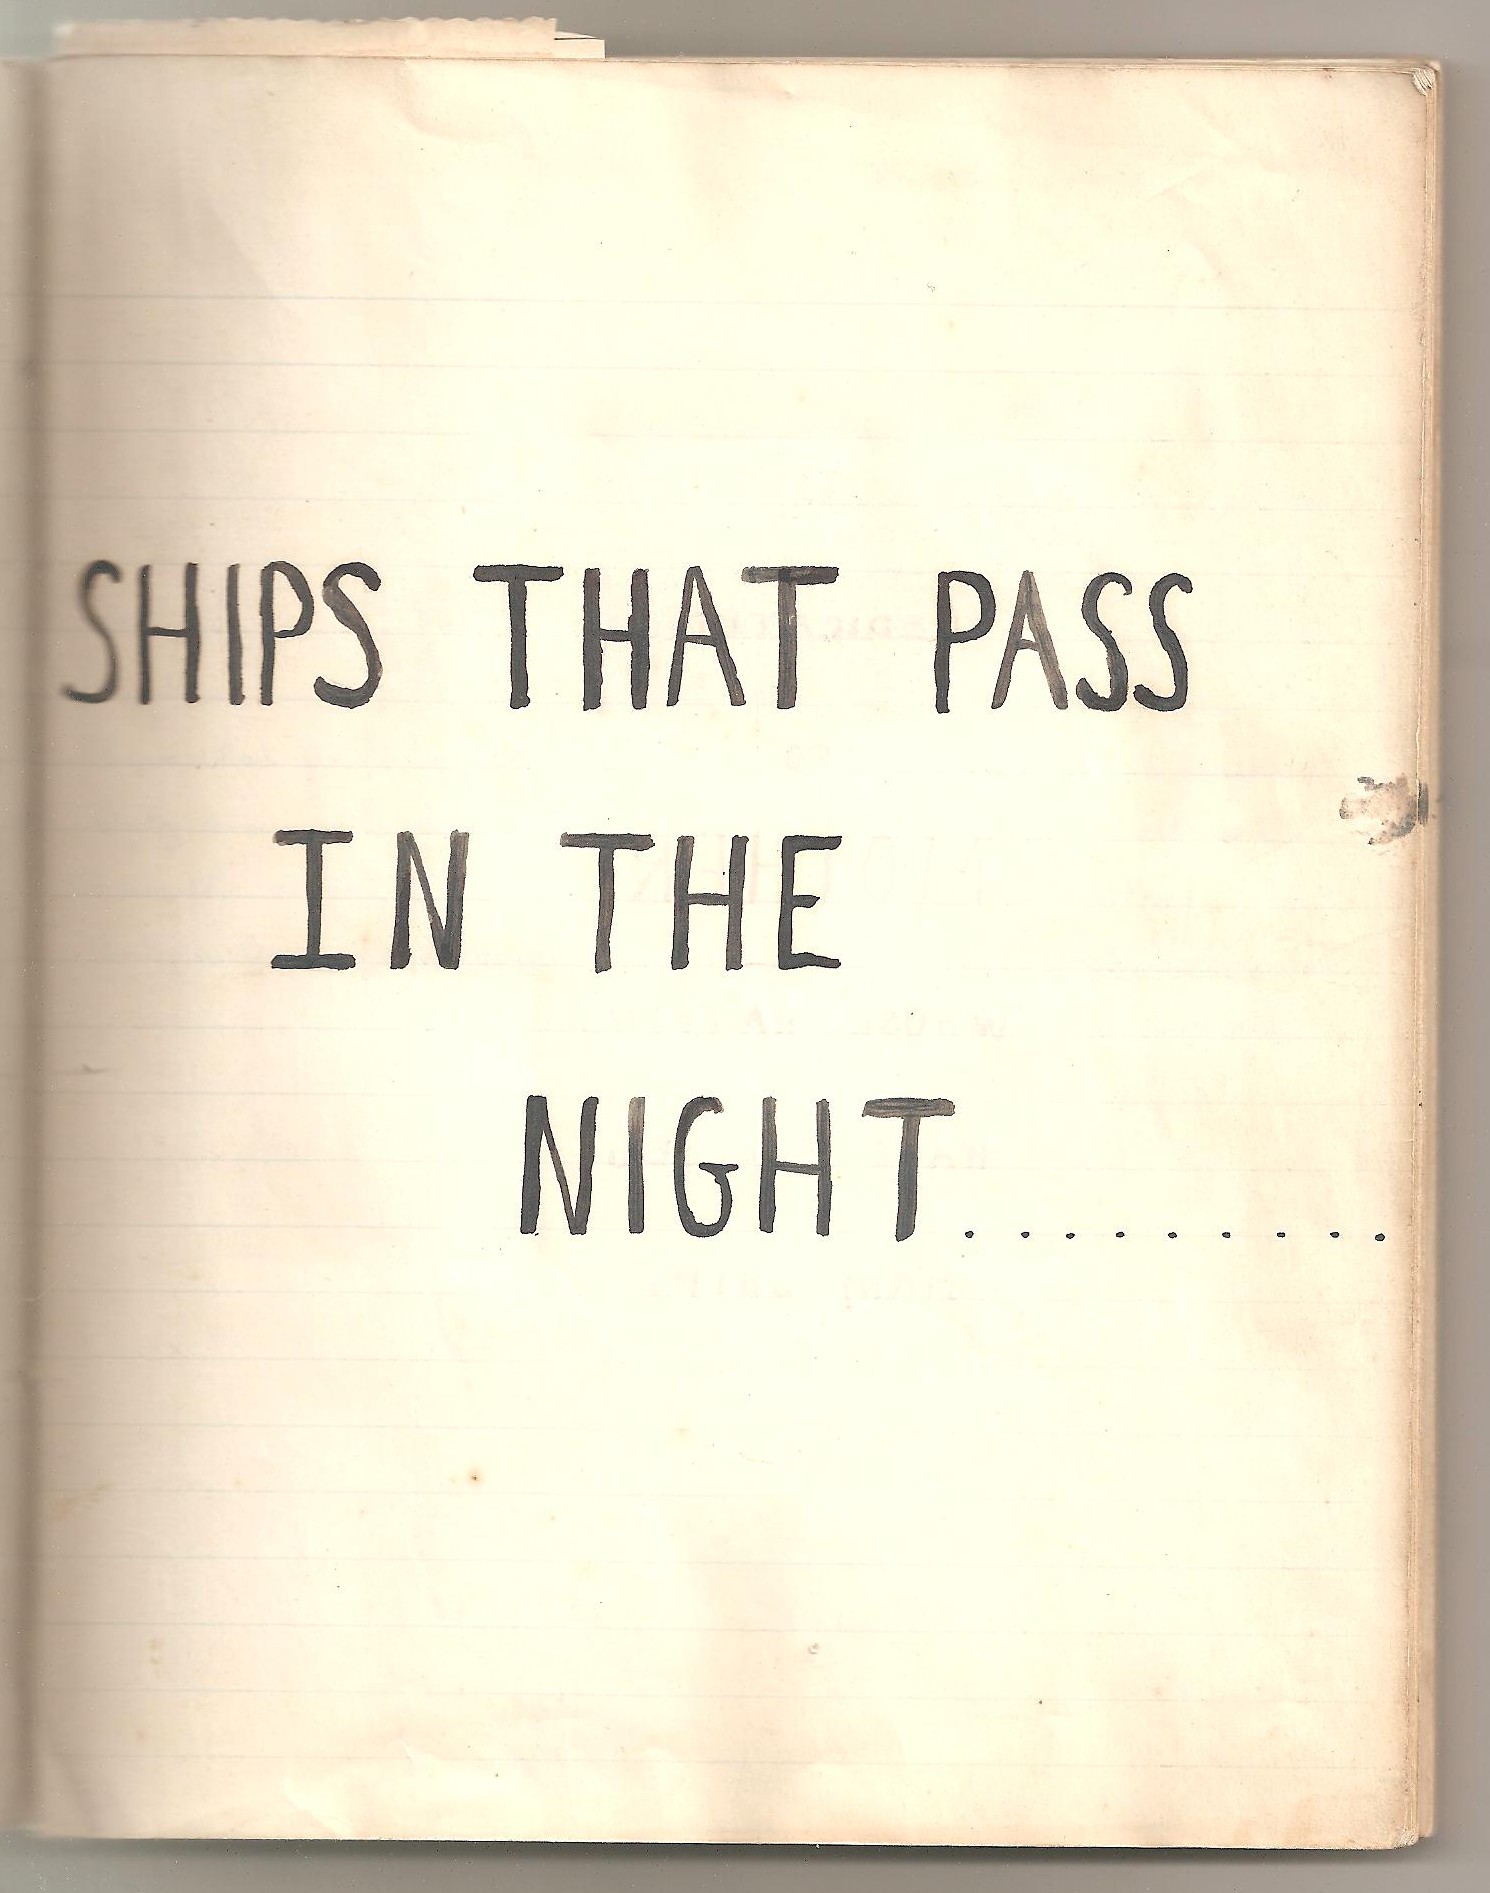 SHIPS THAT PASS
IN THE
NIGHT.........